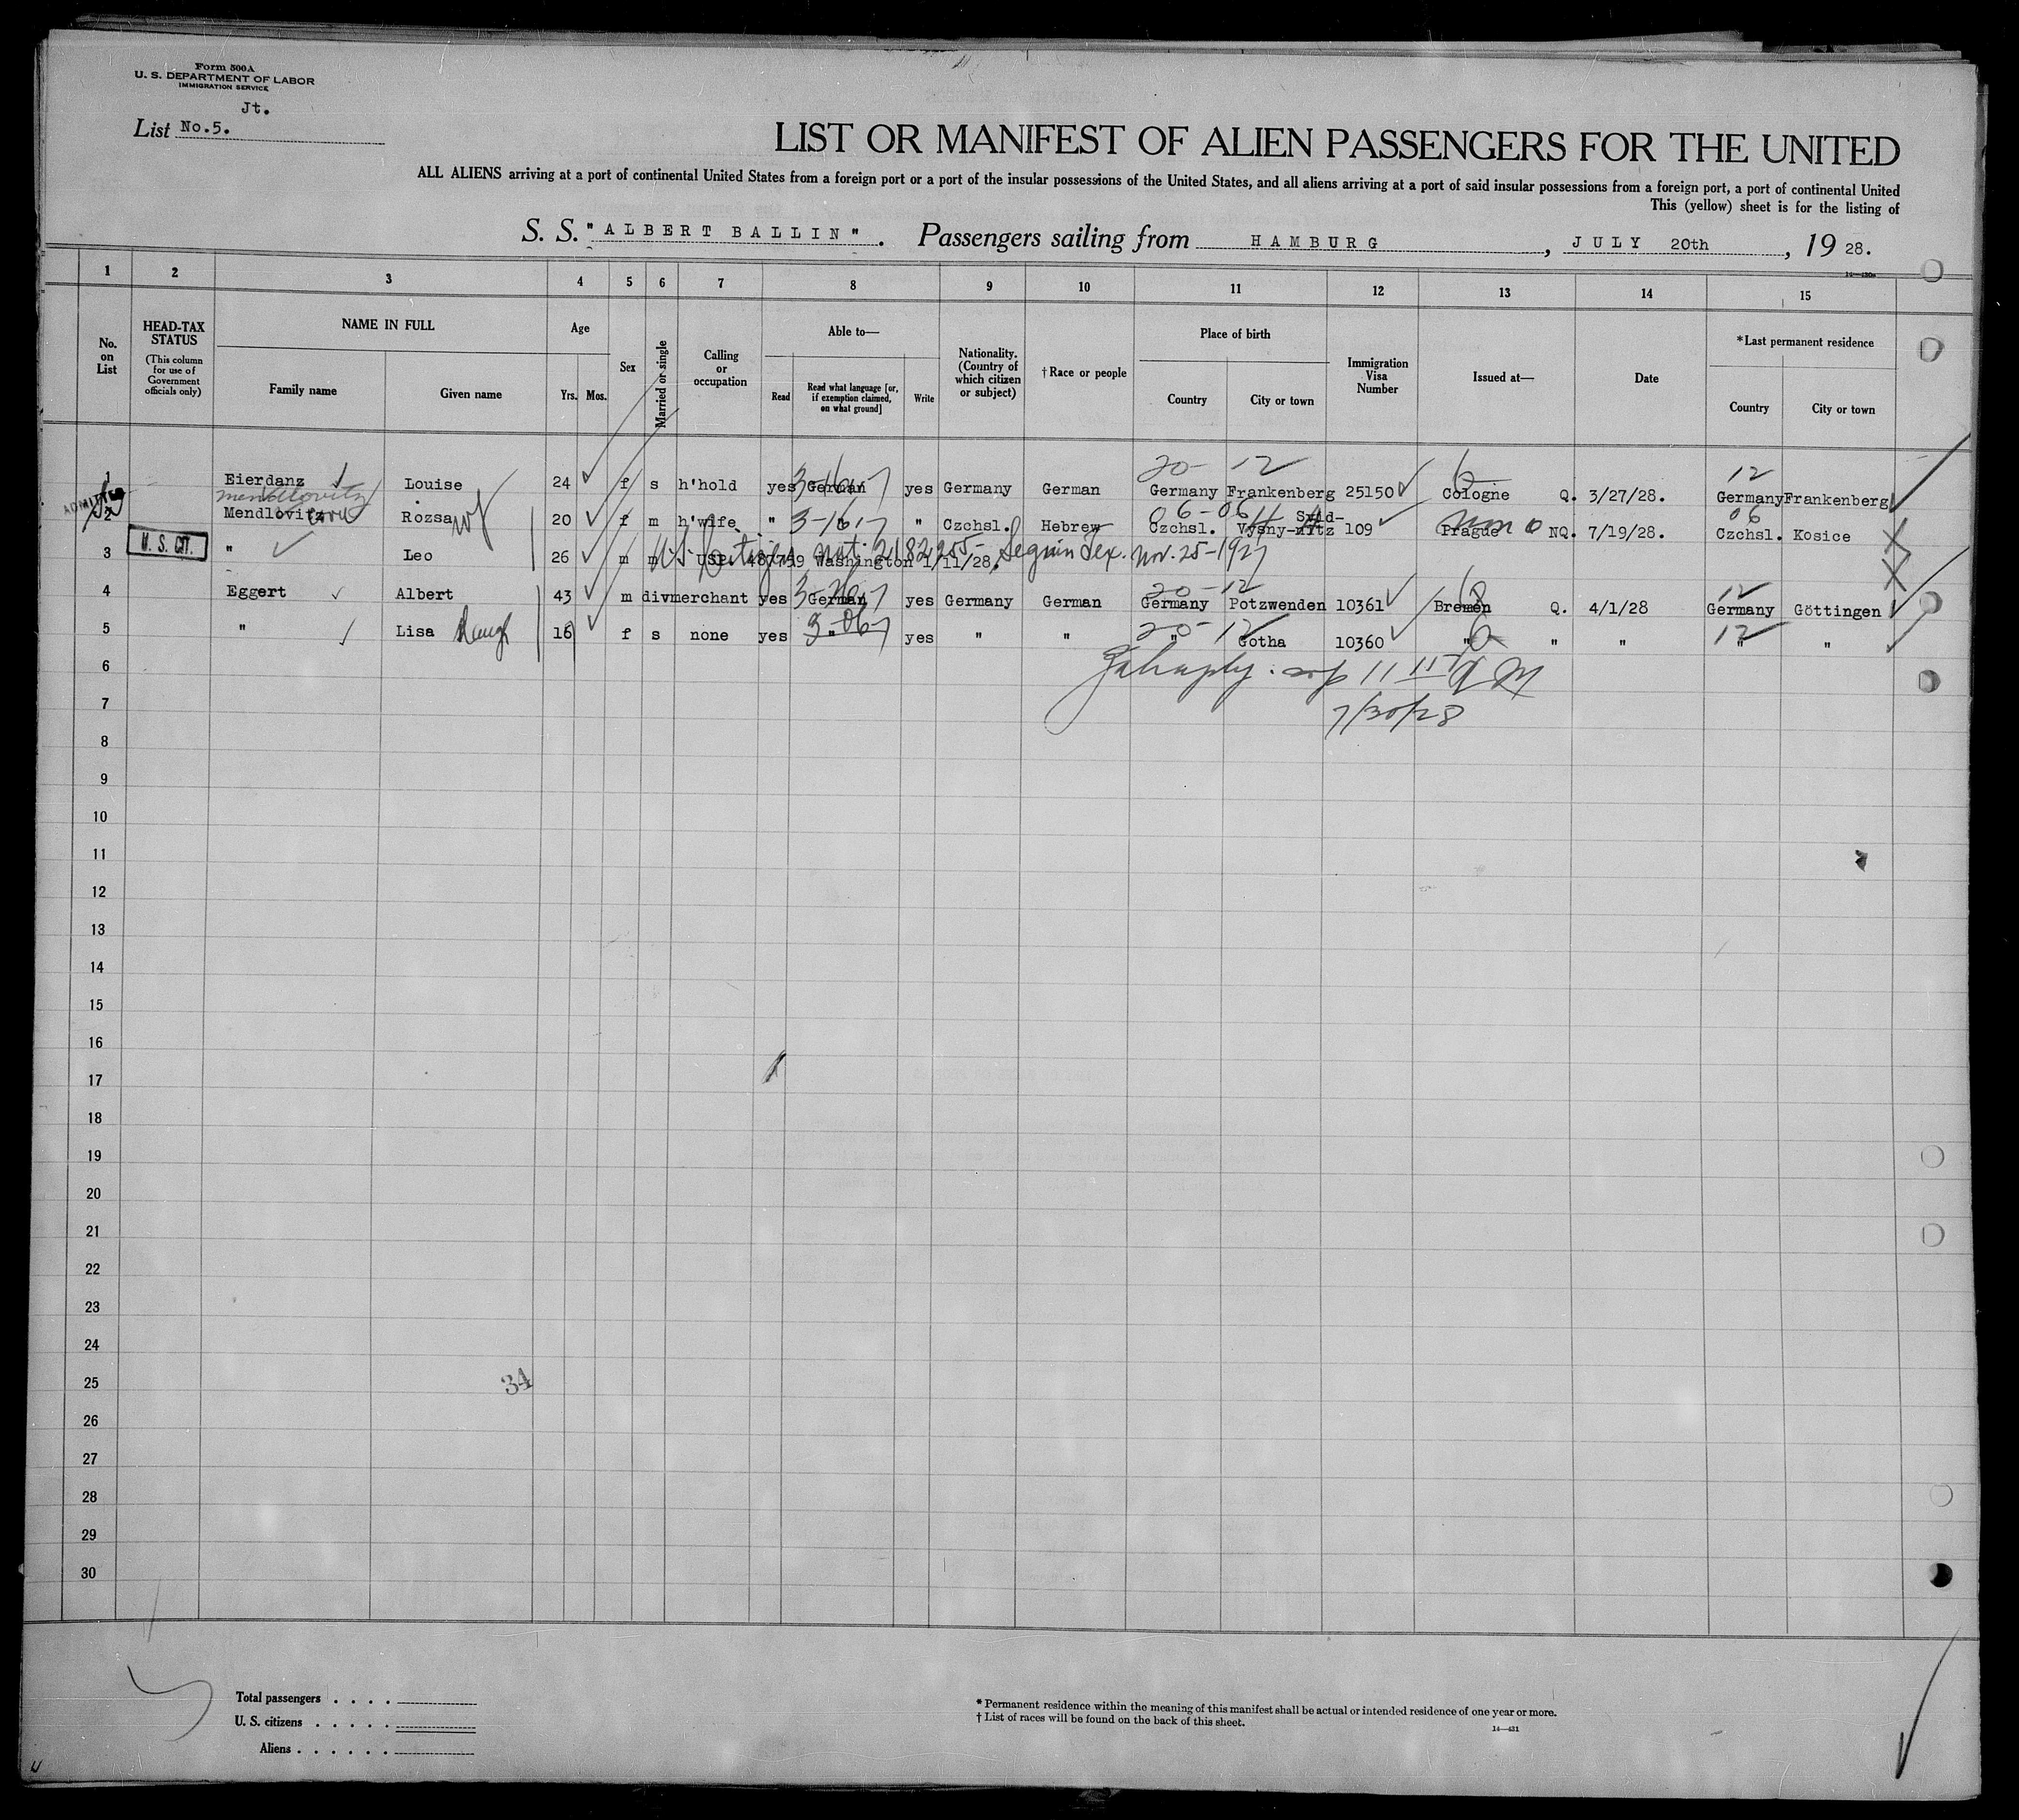 Form 500A
U. S. DEPARTMENT OF LABOR
IMMIGRATION SERVICE
Jt.
List No.5.
LIST OR MANIFEST OF ALIEN PASSENGERS FOR THE UNITED
ALL ALIENS arriving at a port of continental United States from a foreign port or a port of the insular possessions of the United States, and all aliens arriving at a port of said insular possessions from a foreign port, a port of continental United
This (yellow) sheet is for the listing of
S. S. "ALBERT BALLIN". Passengers sailing from HAMBURG, JULY 20th, 1928.
1 2 3 4 5 6 7 8 9 10 11 12 13 14 15
No. on List
HEAD-TAX STATUS
(This column for use of Government officials only)
NAME IN FULL
Family name
Given name
Age
Yrs. Mos.
Sex
Married or single
Calling or occupation
Able to—
Read
Read what language [or, if exemption claimed, on what ground]
Write
Nationality. (Country of which citizen or subject)
† Race or people
Place of birth
Country
City or town
Immigration Visa Number
Issued at—
Date
*Last permanent residence
Country
City or town
20- 12 6 12
1 Eierdanz Louise 24 f s h'hold yes German yes Germany German Germany Frankenberg 25150 Cologne Q. 3/27/28. Germany Frankenberg
ADMITTED
Mendlovitz
06-06 06
2 Mendlovitz Rozsa wf 20 f m h'wife " " " Czchsl. Hebrew Czchsl. Vysny- 109 Prague NQ. 7/19/28. Czchsl. Kosice
U. S. CIT.
3 " Leo 26 m m USP. 487759 Washington 1/11/28.
US Citizen Nat. 2182255- Seguin Tex. Nov. 25-1927
20-12 12
4 Eggert Albert 43 m div merchant yes German yes Germany German Germany Potzwenden 10361 Bremen Q. 4/1/28 Germany Göttingen
20-12 12
5 " Lisa Daugh 16 f s none yes " yes " " " Gotha 10360 " " " " "
6
7 7/30/28
8
9
10
11
12
13
14
15
16
17
18
19
20
21
22
23
24
25 34
26
27
28
29
30
Total passengers . . . .
U. S. citizens . . . . .
Aliens . . . . . .
* Permanent residence within the meaning of this manifest shall be actual or intended residence of one year or more.
† List of races will be found on the back of this sheet.
14—431